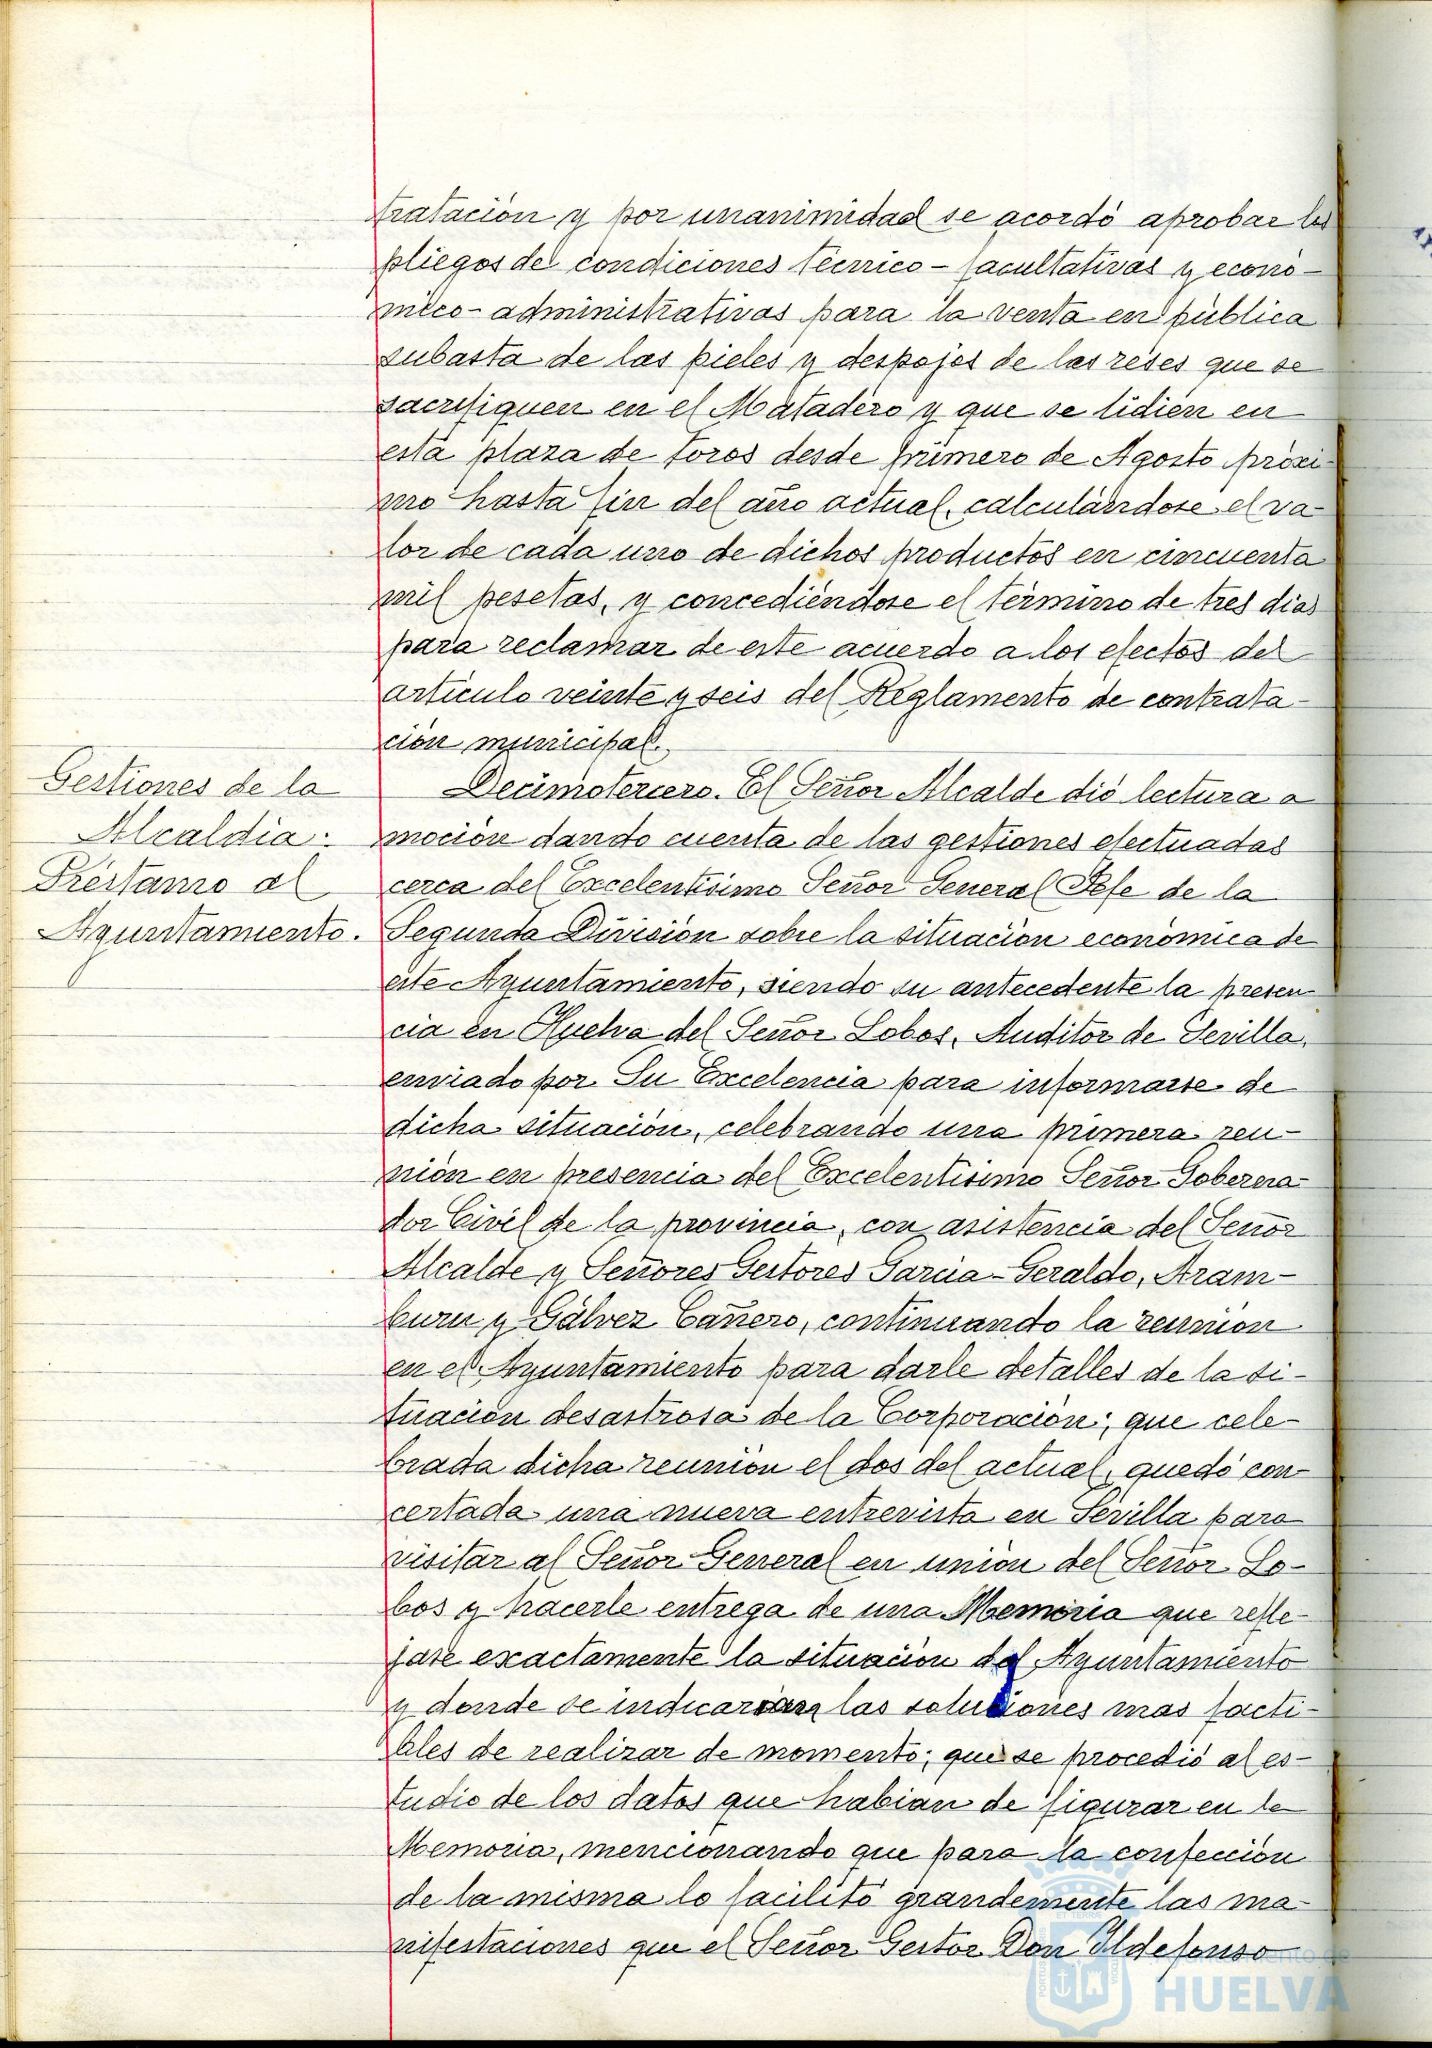 tratación y por unanimidad se acordó aprobar los
pliegos de condiciones técnico-facultativas y econó-
mico-administrativas para la venta en pública
subasta de las pieles y despojos de las reses que se
sacrifiquen en el Matadero y que se lidien en
esta plaza de toros desde primero de Agosto próxi-
mo hasta fin del año actual, calculándose el va-
lor de cada uno de dichos productos en cincuenta
mil pesetas, y concediéndose el término de tres dias
para reclamar de este acuerdo a los efectos del
artículo veinte y seis del Reglamento de contrata-
ción municipal.
Gestiones de la
Alcaldia:
Préstamo al
Ayuntamiento.
Decimotercero. El Señor Alcalde dió lectura a
moción dando cuenta de las gestiones efectuadas
cerca del Excelentisimo Señor General Jefe de la
Segunda División sobre la situación económica de
este Ayuntamiento, siendo su antecedente la presen-
cia en Huelva del Señor Lobos, Auditor de Sevilla,
enviado por Su Excelencia para informarse de
dicha situación, celebrando una primera reu-
nión en presencia del Excelentisimo Señor Goberna-
dor Civil de la provincia, con asistencia del Señor
Alcalde y Señores Gestores Garcia-Geraldo, Aram-
buru y Gálvez Cañero, continuando la reunión
en el Ayuntamiento para darle detalles de la si-
tuación desastrosa de la Corporación; que cele-
brada dicha reunión el dos del actual, quedó con-
certada una nueva entrevista en Sevilla para
visitar al Señor General en unión del Señor Lo-
bos y hacerle entrega de una Memoria que refle-
jase exactamente la situación del Ayuntamiento
y donde se indicarian las soluciones mas facti-
bles de realizar de momento; que se procedió al es-
tudio de los datos que habian de figurar en la
Memoria, mencionando que para la confección
de la misma lo facilitó grandemente las ma-
nifestaciones que el Señor Gestor Don Ildefonso
Ayuntamiento de
HUELVA